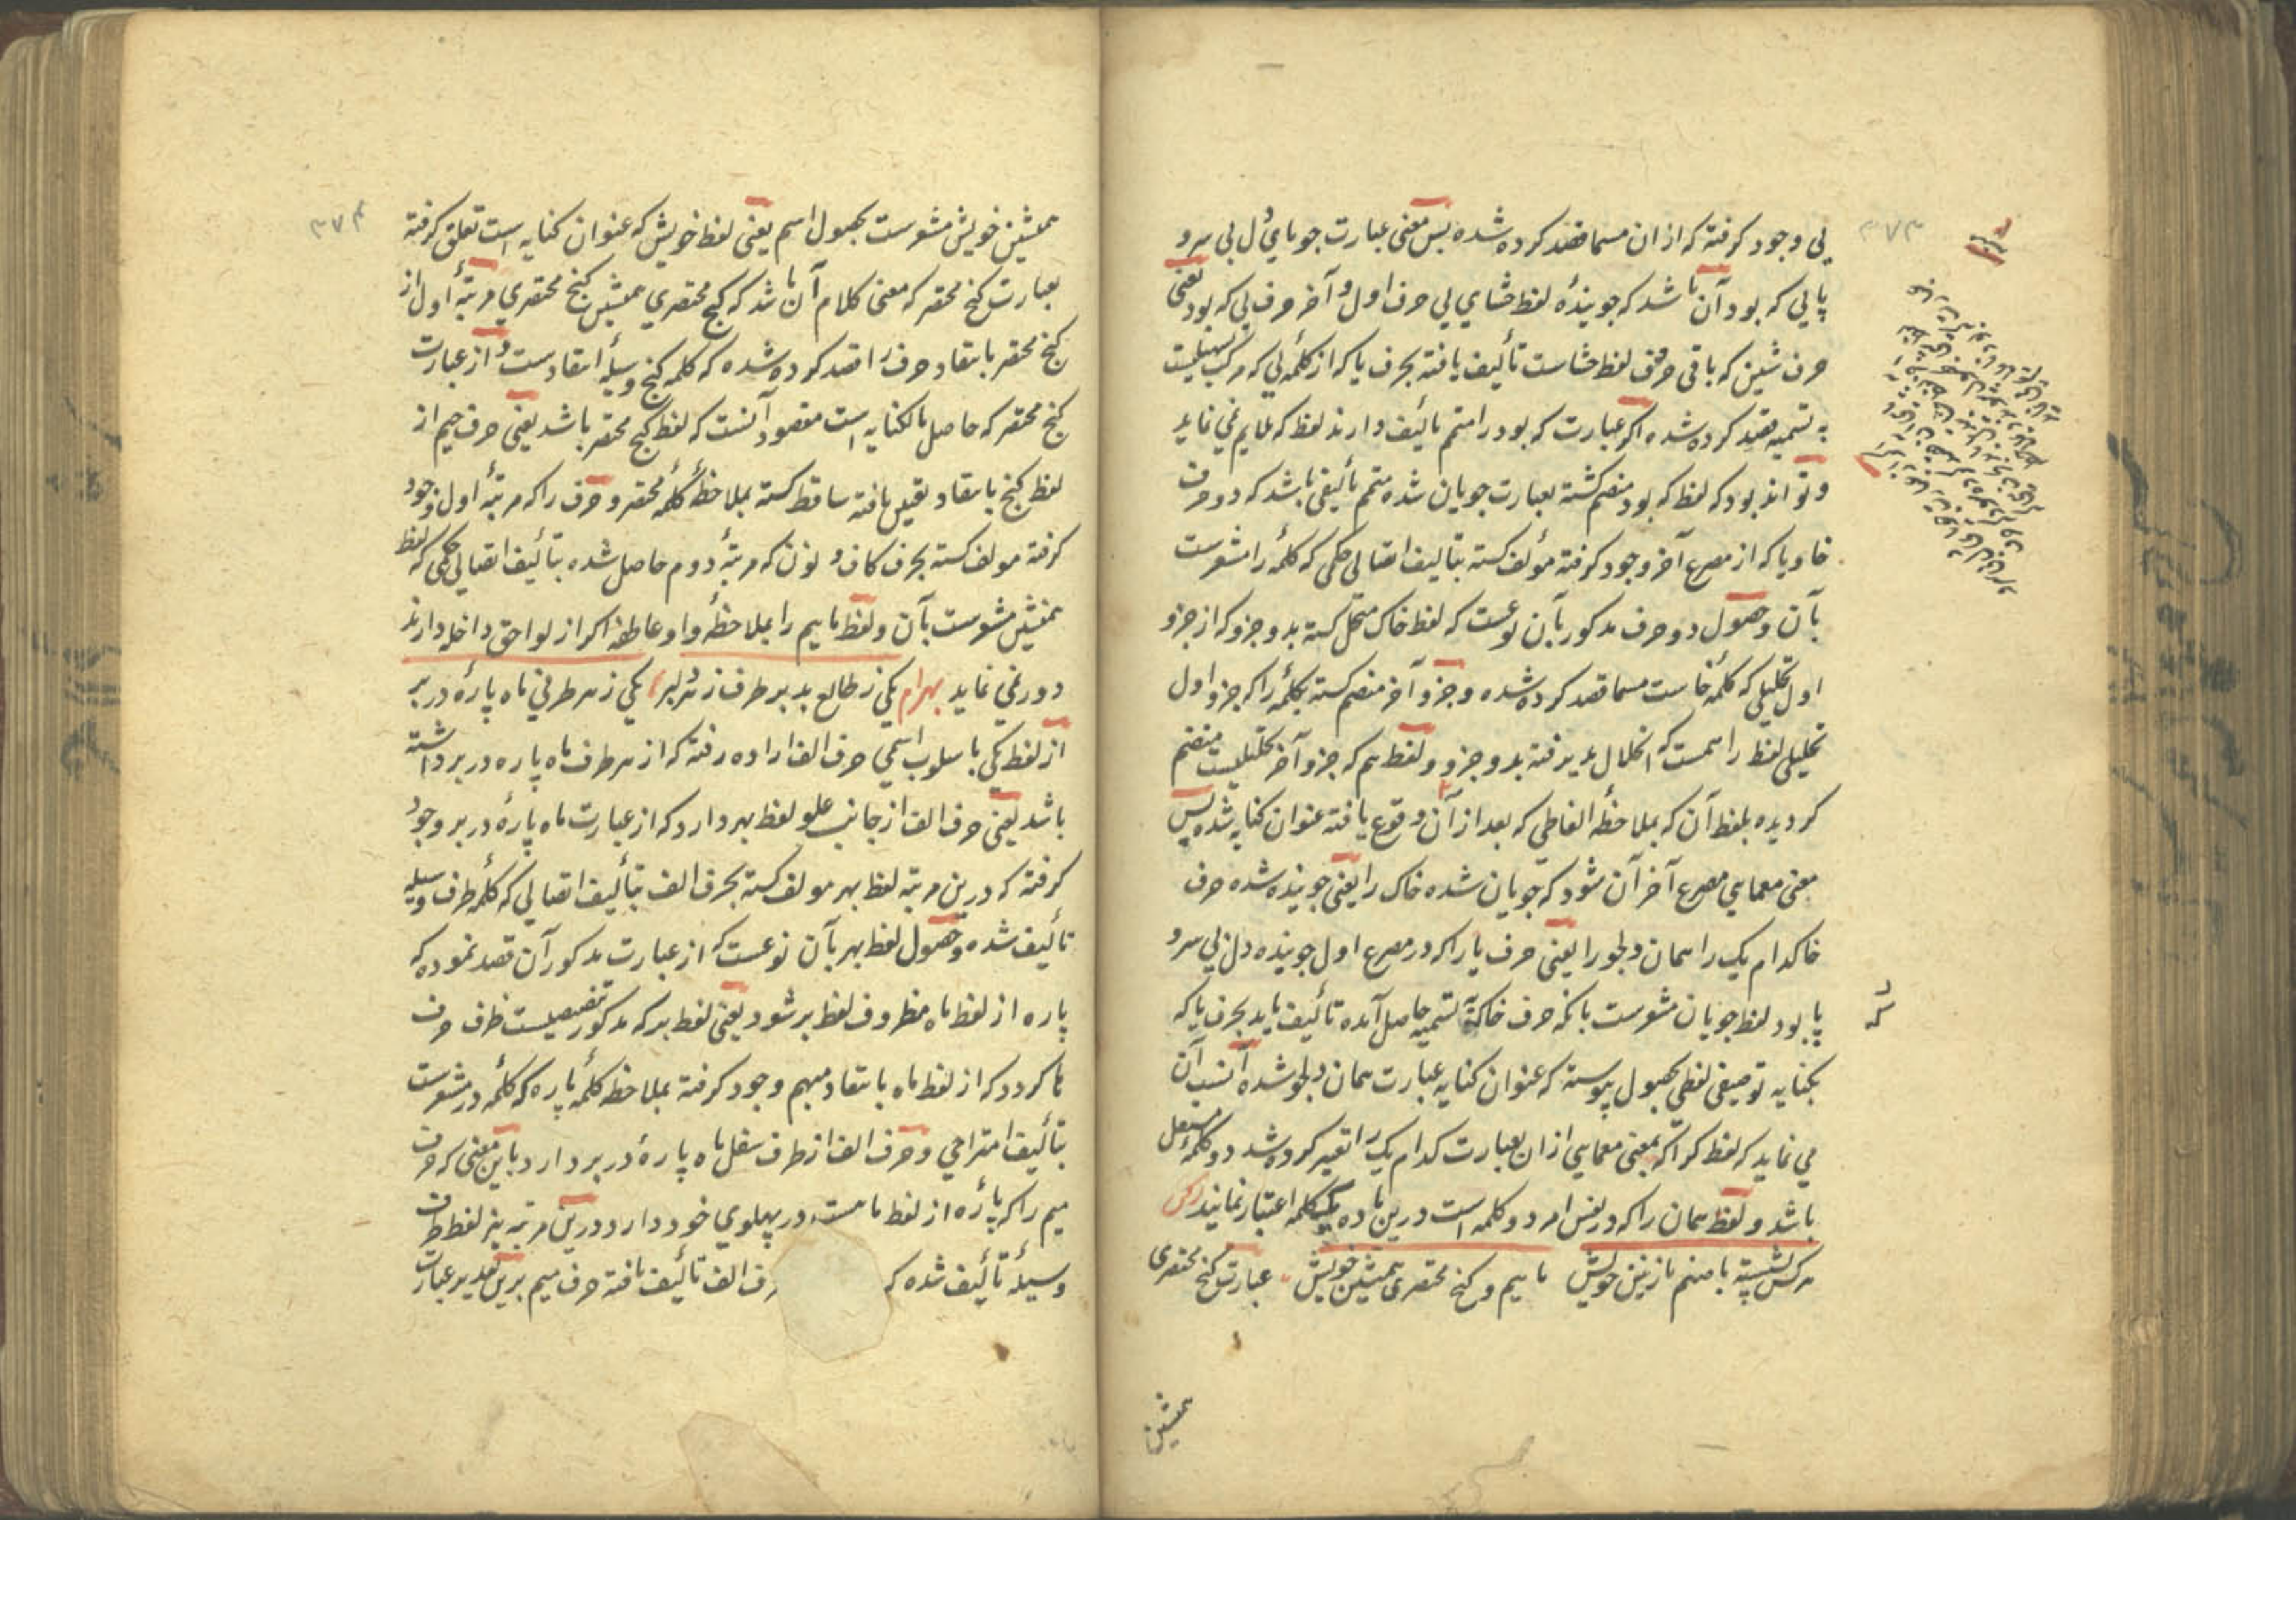 ۳۷۳
پی وجود کرفته که از ان مسما قصد کرده شده پس معنی عبارت جویای دل بی سرو
پا پی که بود آن باشد که جویندهٔ لفظ خشای پی حرف اول و آخر حرف پی که بود یعنی
حرف شین که باقی حرف لفظ خشاست تألیف یافته بحرف یا که از کلمهٔ پی که مرکب
به تسمیه قصد کرده شده اکر عبارت که بود را متمم تألیف دارند لفظ که ملایم نمی نماید
و تواند بود که لفظ که بود منضم کشته بعبارت جویان شده متمم تألیفی باشد که دو حرف
خا و یا که از مصرع آخر وجود کرفته مؤلف کسته بتالیف اتصالی حکمی که کلمهٔ را مشعرست
بآن و حصول دو حرف مذکور بآن نوعست که لفظ خاک منحل کسته بدو جزو که از جزو
اول تحلیلی که کلمهٔ خاست مسما قصد کرده شده و جزو آخر منضم کسته بکلمهٔ را که جزو اول
تحلیلی لفظ را همست که انحلال پذیرفته بدو جزو و لفظ هم که جزو آخر تحلیلیست منضم
کردیده بلفظ آن که بملاحظهٔ الفاظی که بعد از آن وقوع یافته عنوان کنایه شده پس
معنی معمایی مصرع آخر آن شود که جویان شده خاک را یعنی جوینده شده حرف
خا کدام یک را همان دلجو را یعنی حرف یا را که در مصرع اول جوینده دل بی سرو
پا بود لفظ جویان مشعرست بانکه حرف خا که بتسمیه حاصل آمده تألیف یابد بحرف یا که
بکنایه توصیفی لفظی بحصول پیوسته که عنوان کنایه عبارت همان دلجو شده انسب آن
می نماید که لفظ کرا که بمعنی معمایی از ان بعبارت کدام یک را تعبیر کرده شد دو کلمهٔ مستعمل
باشد و لفظ همان را که در نفس امر دو کلمه است درین ماده یک کلمه اعتبار نمایند
هر کس نشسته با صنم نازنین خویش ماییم و کنج مختصری همنشین خویش عبارت کنج مختصری
همنشین
۳۷۴
همنشین خویش مشعرست بحصول اسم یعنی لفظ خویش که عنوان کنایه است تعلق کرفته
بعبارت کنج مختصر که معنی کلام آن باشد که کنج مختصری همنشین کنج مختصری مرتبهٔ اول از
کنج مختصر بانتقاد حرف را قصد کرده شده که کلمه کنج وسیلهٔ انتقادست و از عبارت
کنج مختصر که حاصل بالکنایه است مقصود آنست که لفظ کنج مختصر باشد یعنی حرف جیم از
لفظ کنج بانتقاد تعیین یافته ساقط کسته بملاحظهٔ کلمهٔ مختصر و حرف را که مرتبهٔ اول وجود
کرفته مولف کسته بحرف کاف و نون که مرتبهٔ دوم حاصل شده بتألیف اتصالی حکمی که لفظ
همنشین مشعرست بآن و لفظ ماییم را بملاحظهٔ واو عاطفه اکر از لواحق داخله دارند
دور نمی نماید بهرام یکی ز طالع بد بر طرف ز دلبر یکی ز هر طرفی ماه پارهٔ در بر
از لفظ یکی باسلوب اسمی حرف الف اراده رفته که از هر طرف ماه پاره در بر داشته
باشد یعنی حرف الف از جانب علو لفظ بهر دارد که از عبارت ماه پارهٔ در بر وجود
کرفته که درین مرتبه لفظ بهر مولف کسته بحرف الف بتألیف اتصالی که کلمهٔ طرف وسیله
تألیف شده و حصول لفظ بهر بآن نوعست که از عبارت مذکور آن قصد نموده که
پاره از لفظ ماه مظروف لفظ بر شود یعنی لفظ بر که مذکور تنصیصیست ظرف حرف
ها کردد که از لفظ ماه بانتقاد مبهم وجود کرفته بملاحظه کلمهٔ پاره که کلمهٔ در مشعرست
بتألیف امتزاجی و حرف الف از طرف سفل ماه پارهٔ در بر دارد باین معنی که حرف
میم را که پارهٔ از لفظ ماهست در پهلوی خود دارد و درین مرتبه نیز لفظ طرف
وسیلهٔ تألیف شده که رف الف تألیف یافته حرف میم برین تقدیر عبارت